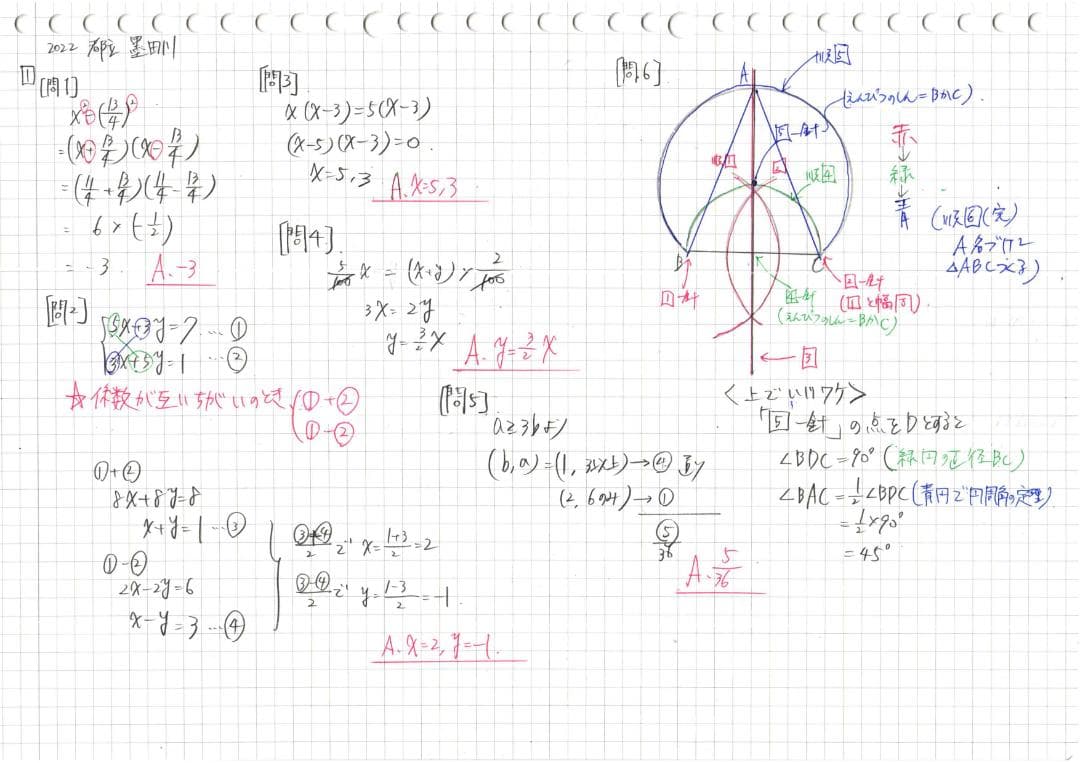 2022 都立 墨田川
1
[問1]
x²-(13/4)²
=(x+13/4)(x-13/4)
=(11/4+13/4)(11/4-13/4)
= 6×(-1/2)
= -3 A. -3
[問2]
5x+3y=7 … ①
3x+5y=1 … ②
☆係数が互いちがいのとき
①+②
①-②
①+②
8x+8y=8
x+y=1 … ③
①-②
2x-2y=6
x-y=3 … ④
(③+④)/2 で x=(1+3)/2=2
(③-④)/2 で y=(1-3)/2=-1
A. x=2, y=-1.
[問3]
x(x-3)=5(x-3)
(x-5)(x-3)=0.
x=5,3 A. x=5,3
[問4]
5/100 x = (x+y)×2/100
3x=2y
y=3/2 x
A. y=3/2 x
[問5]
a≧3bより
(b,a)=(1, 3以上)→④通り
(2, 6のみ)→①
⑤/36
A. 5/36
[問6]
A
順5
(えんぴつのしん=BかC).
5-針
1
2
順4
赤
↓
緑
↓
青
(順6(完)
A名づけて
△ABC'つくる)
B
C
1-針
2-針
(1と幅同)
4-針
(えんぴつのしん=BかC)
← 3
<上でいいワケ>
「5-針」の点をDとすると
∠BDC=90°(緑円の直径BC)
∠BAC=1/2∠BDC(青円で円周角の定理)
=1/2×90°
=45°